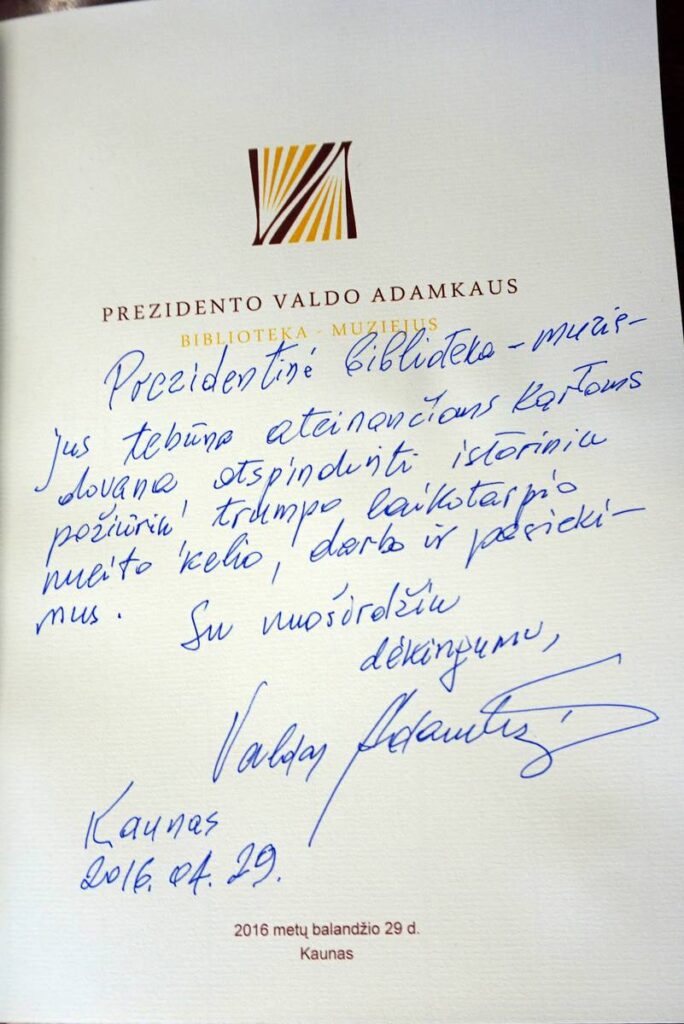 PREZIDENTO VALDO ADAMKAUS
BIBLIOTEKA - MUZIEJUS
Prezidentinė biblioteka - muzie-
jus tebūna ateinančioms kartoms
dovana atspindinti istoriniu
požiūriu, trumpo laikotarpio
nueito kelio, darbo ir pasieki-
mus.
Su nuoširdžiu
dėkingumu,
Valdas Adamkus
Kaunas
2016.04.29.
2016 metų balandžio 29 d.
Kaunas